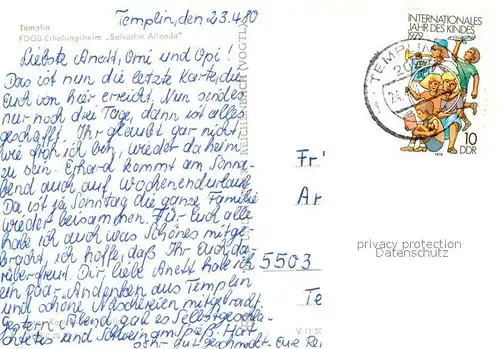 Templin, den 23.4.80
Templin
FDGB-Erholungsheim „Salvador Allende"
Liebste Anett, Omi und Opi!
Das ist nun die letzte Karte, die
Euch von hier erreicht. Nun sind es
nur noch drei Tage, dann ist alles
geschafft. Ihr glaubt gar nicht,
wie froh ich bin, wieder daheim
zu sein. Erhard kommt am Sonna-
bend auch auf Wochenendurlaub.
Da ist ja Sonntag die ganze Familie
wieder beisammen. Für Euch alle
habe ich auch was Schönes mitge-
bracht, ich hoffe, daß Ihr Euch da-
rüber freut. Dir, liebe Anett habe ich
ein paar Andenken aus Templin
und schöne Naschereien mitgebracht.
Gestern Abend gab es Selbstgeschla-
chtetes und Schwein am Spieß. Hat
sehr gut geschmeckt. Eure
REICHENBACH (VOGTL)
INTERNATIONALES
JAHR DES KINDES
1979
TEMPLIN
10
DDR
1979
Fr
An
5503
Te
V 11
privacy protection
Datenschutz